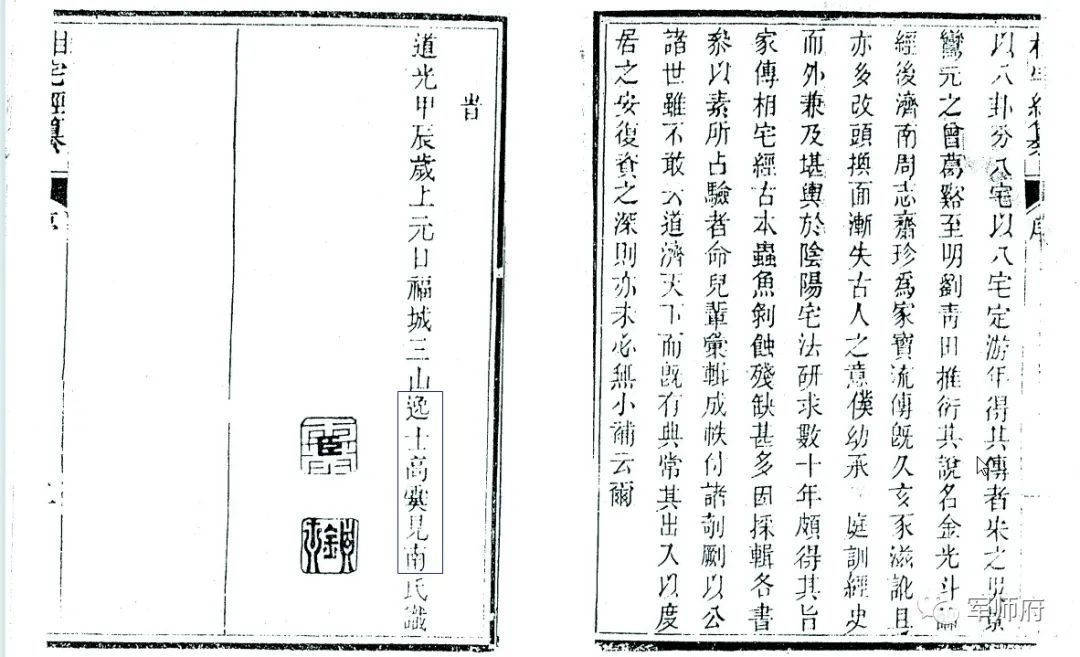 相宅經纂
序
以八卦分八宅以八宅定游年得其傳者宋之吳景
鸞元之曾葛谿至明劉青田推衍其說名金光斗臨
經後濟南周志齋珍爲家寶流傳旣久亥豕滋訛且
亦多改頭換面漸失古人之意僕幼承 庭訓經史
而外兼及堪輿於陰陽宅法研求數十年頗得其旨
家傳相宅經古本蟲魚剝蝕殘缺甚多因採輯各書
叅以素所占驗者命兒輩彙輯成帙付諸剞劂以公
諸世雖不敢云道濟天下而旣有典常其出入以度
居之安復資之深則亦未必無小補云爾
旹
道光甲辰歲上元日福城三山逸士高見南氏識
相宅經纂
序
军师府